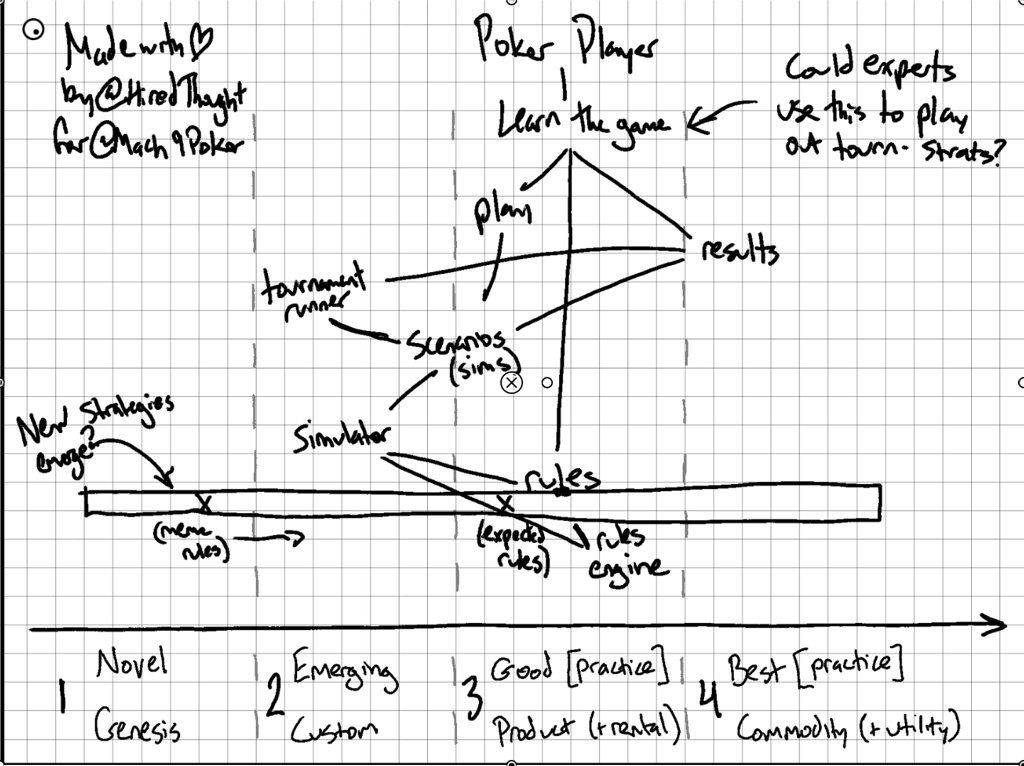 Made with ♡
by @HiredThought
for @Mach9Poker
Poker Player
Learn the game
Could experts
use this to play
out tourn. strats?
play
results
tournament
runner
Scenarios
(sims)
New Strategies
emerge?
Simulator
rules
X
X
(meme
rules)
(expected
rules)
rules
engine
1
Novel
Genesis
2
Emerging
Custom
3
Good [practice]
Product (+rental)
4
Best [practice]
Commodity (+utility)